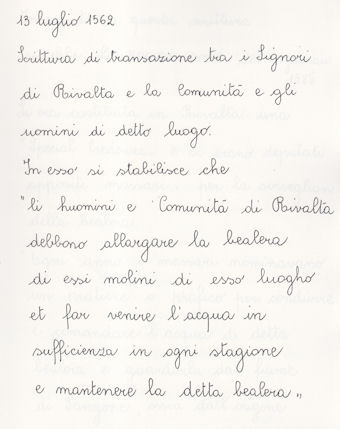 13 luglio 1562
Scrittura di transazione tra i Signori
di Rivalta e la Comunità e gli
uomini di detto luogo.
In esso si stabilisce che
"li huomini e Comunità di Rivalta
debbono allargare la bealera
di essi molini di esso luogho
et far venire l'acqua in
sufficienza in ogni stagione
e mantenere la detta bealera"